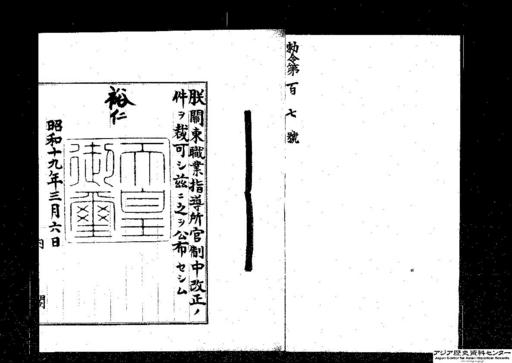 勅令第百七號
朕關東職業指導所官制中改正ノ
件ヲ裁可シ茲ニ之ヲ公布セシム
裕仁
天皇
御璽
昭和十九年三月六日
内閣
アジア歴史資料センター
Japan Center for Asian Historical Records